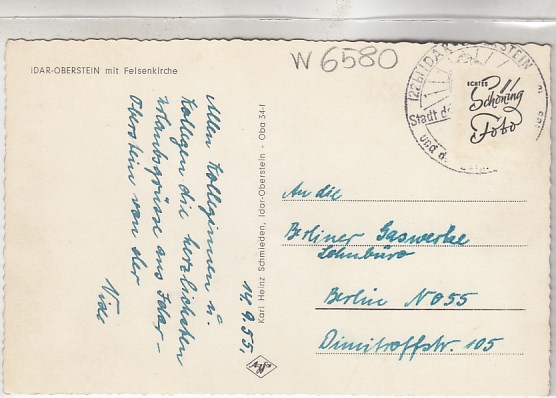 IDAR-OBERSTEIN mit Felsenkirche
W 6580
(22b) IDAR-OBERSTEIN
Stadt de
und d
ECHTES
Schöning
Foto
Allen Kolleginnen u.
Kollegen die herzlichsten
Urlaubsgrüsse aus Idar-
Oberstein von der
14.9.55.
Karl Heinz Schmieden, Idar-Oberstein - Oba 34-f
Agfa
An die
Berliner Gaswerke
Lohnbüro
Berlin NO55
Dimitroffstr. 105